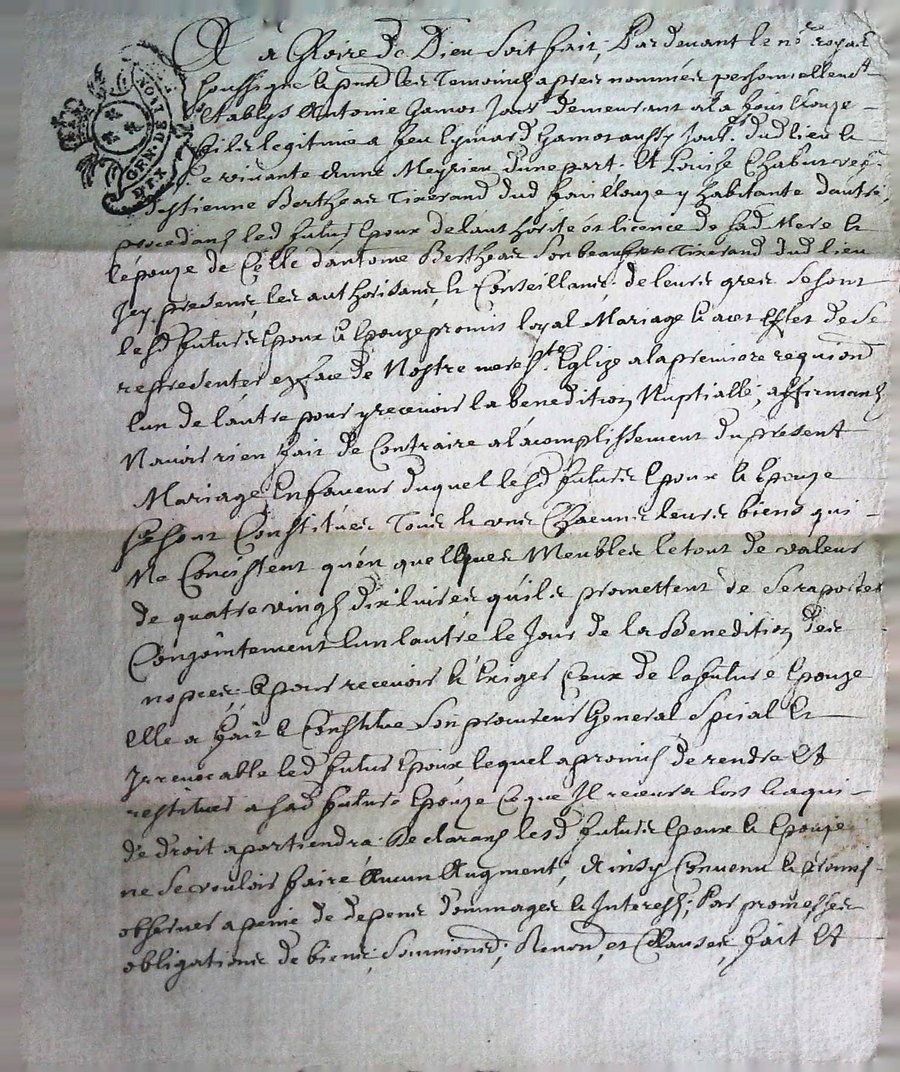 A a Gloire de Dieu Soit fait, Pardevant le no.e royal
Soussigné & pnd les Temoins apres nommées personnellemt
Establys Antoine Gamos Jour. demeurant a la
fils legitime a feu Aymard Gamos aussy Jour. dud lieu &
vivante dune Meyrieu dune part. Et Louise Chabut
destienne Bertheas Tixerand dud y habitante dautre,
procedans led futur Epoux de lauthorité et licence de sad Mere &
lepouze de Celle dantoine Bertheas Son beaufrere Tixerand dud lieu
Icy presens les authorisans & Conseillans. de leurs grés Se sont
lesd futurs Epoux & Epouze promis loyal Mariage & avec Effet de Se
representer en face de Nostre mere Ste Eglize a la premiere requiond
lun de lautre pour y recevoir la benedition Nuptialle, affirmans
Navoir rien fait de Contraire a lacomplissement du present
Mariage En faveur duquel lesd futurs Epoux & Epouze
Se sont Constitués Tous & uns Chacuns leurs biens qui
Ne Concistent quèn quelques Meubles le tout de valeur
de quatre vingt dix livres quils promettent de Se raporter
Conjointement lun lautre le Jour de la Benedition des
nopces & pour recevoir & Exiger Ceux de la future Epouze
elle a fait & Constitue Son procureur General Spcial &
Irrevocable led futur Epoux, lequel a promis de rendre Et
restituer a sad future Epouze Ce que Il recevra lors & a qui
de droit apartiendra. Declarans lesd futurs Epoux & Epouze
ne Se vouloir faire Aucun Augment, Ainsy Convenu & promis
observer a peine de depens dommages & Interests, Par promesses
obligations de biens, Soumiond, Renond, et Clauses, fait Et
GEN. DE
DIX